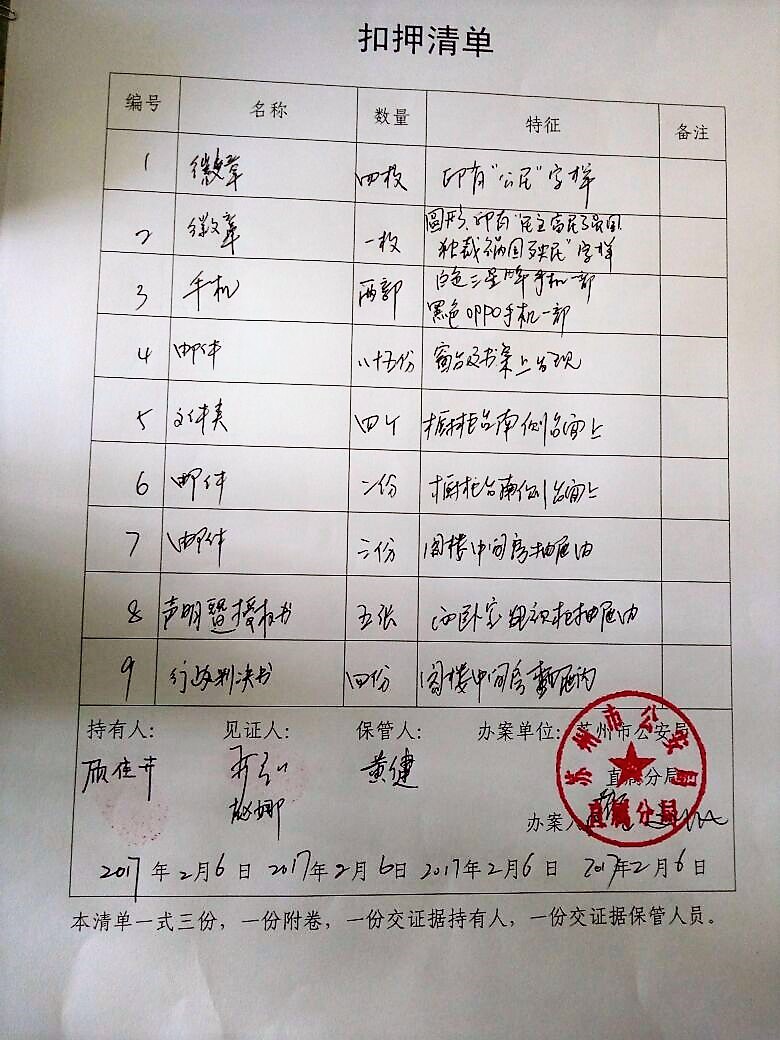 扣押清单
编号 名称 数量 特征 备注
1 徽章 四枚 印有"公民"字样
2 徽章 一枚 圆形、印有"民主富民强国
独裁祸国殃民"字样
3 手机 两部 白色三星牌手机一部
黑色OPPO手机一部
4 邮件 八十五份 窗台及书案上发现
5 文件夹 四个 橱柜台南侧台面上
6 邮件 二份 橱柜台南侧台面上
7 邮件 三份 阁楼中间房抽屉内
8 声明暨授权书 五张 西卧室电视柜抽屉内
9 行政判决书 四份 阁楼中间房抽屉内
持有人： 见证人： 保管人： 办案单位：苏州市公安局
直属分局
顾佳井 黄健
赵娜
办案人
苏州市公安局
直属分局
2017年2月6日 2017年2月6日 2017年2月6日 2017年2月6日
本清单一式三份，一份附卷，一份交证据持有人，一份交证据保管人员。